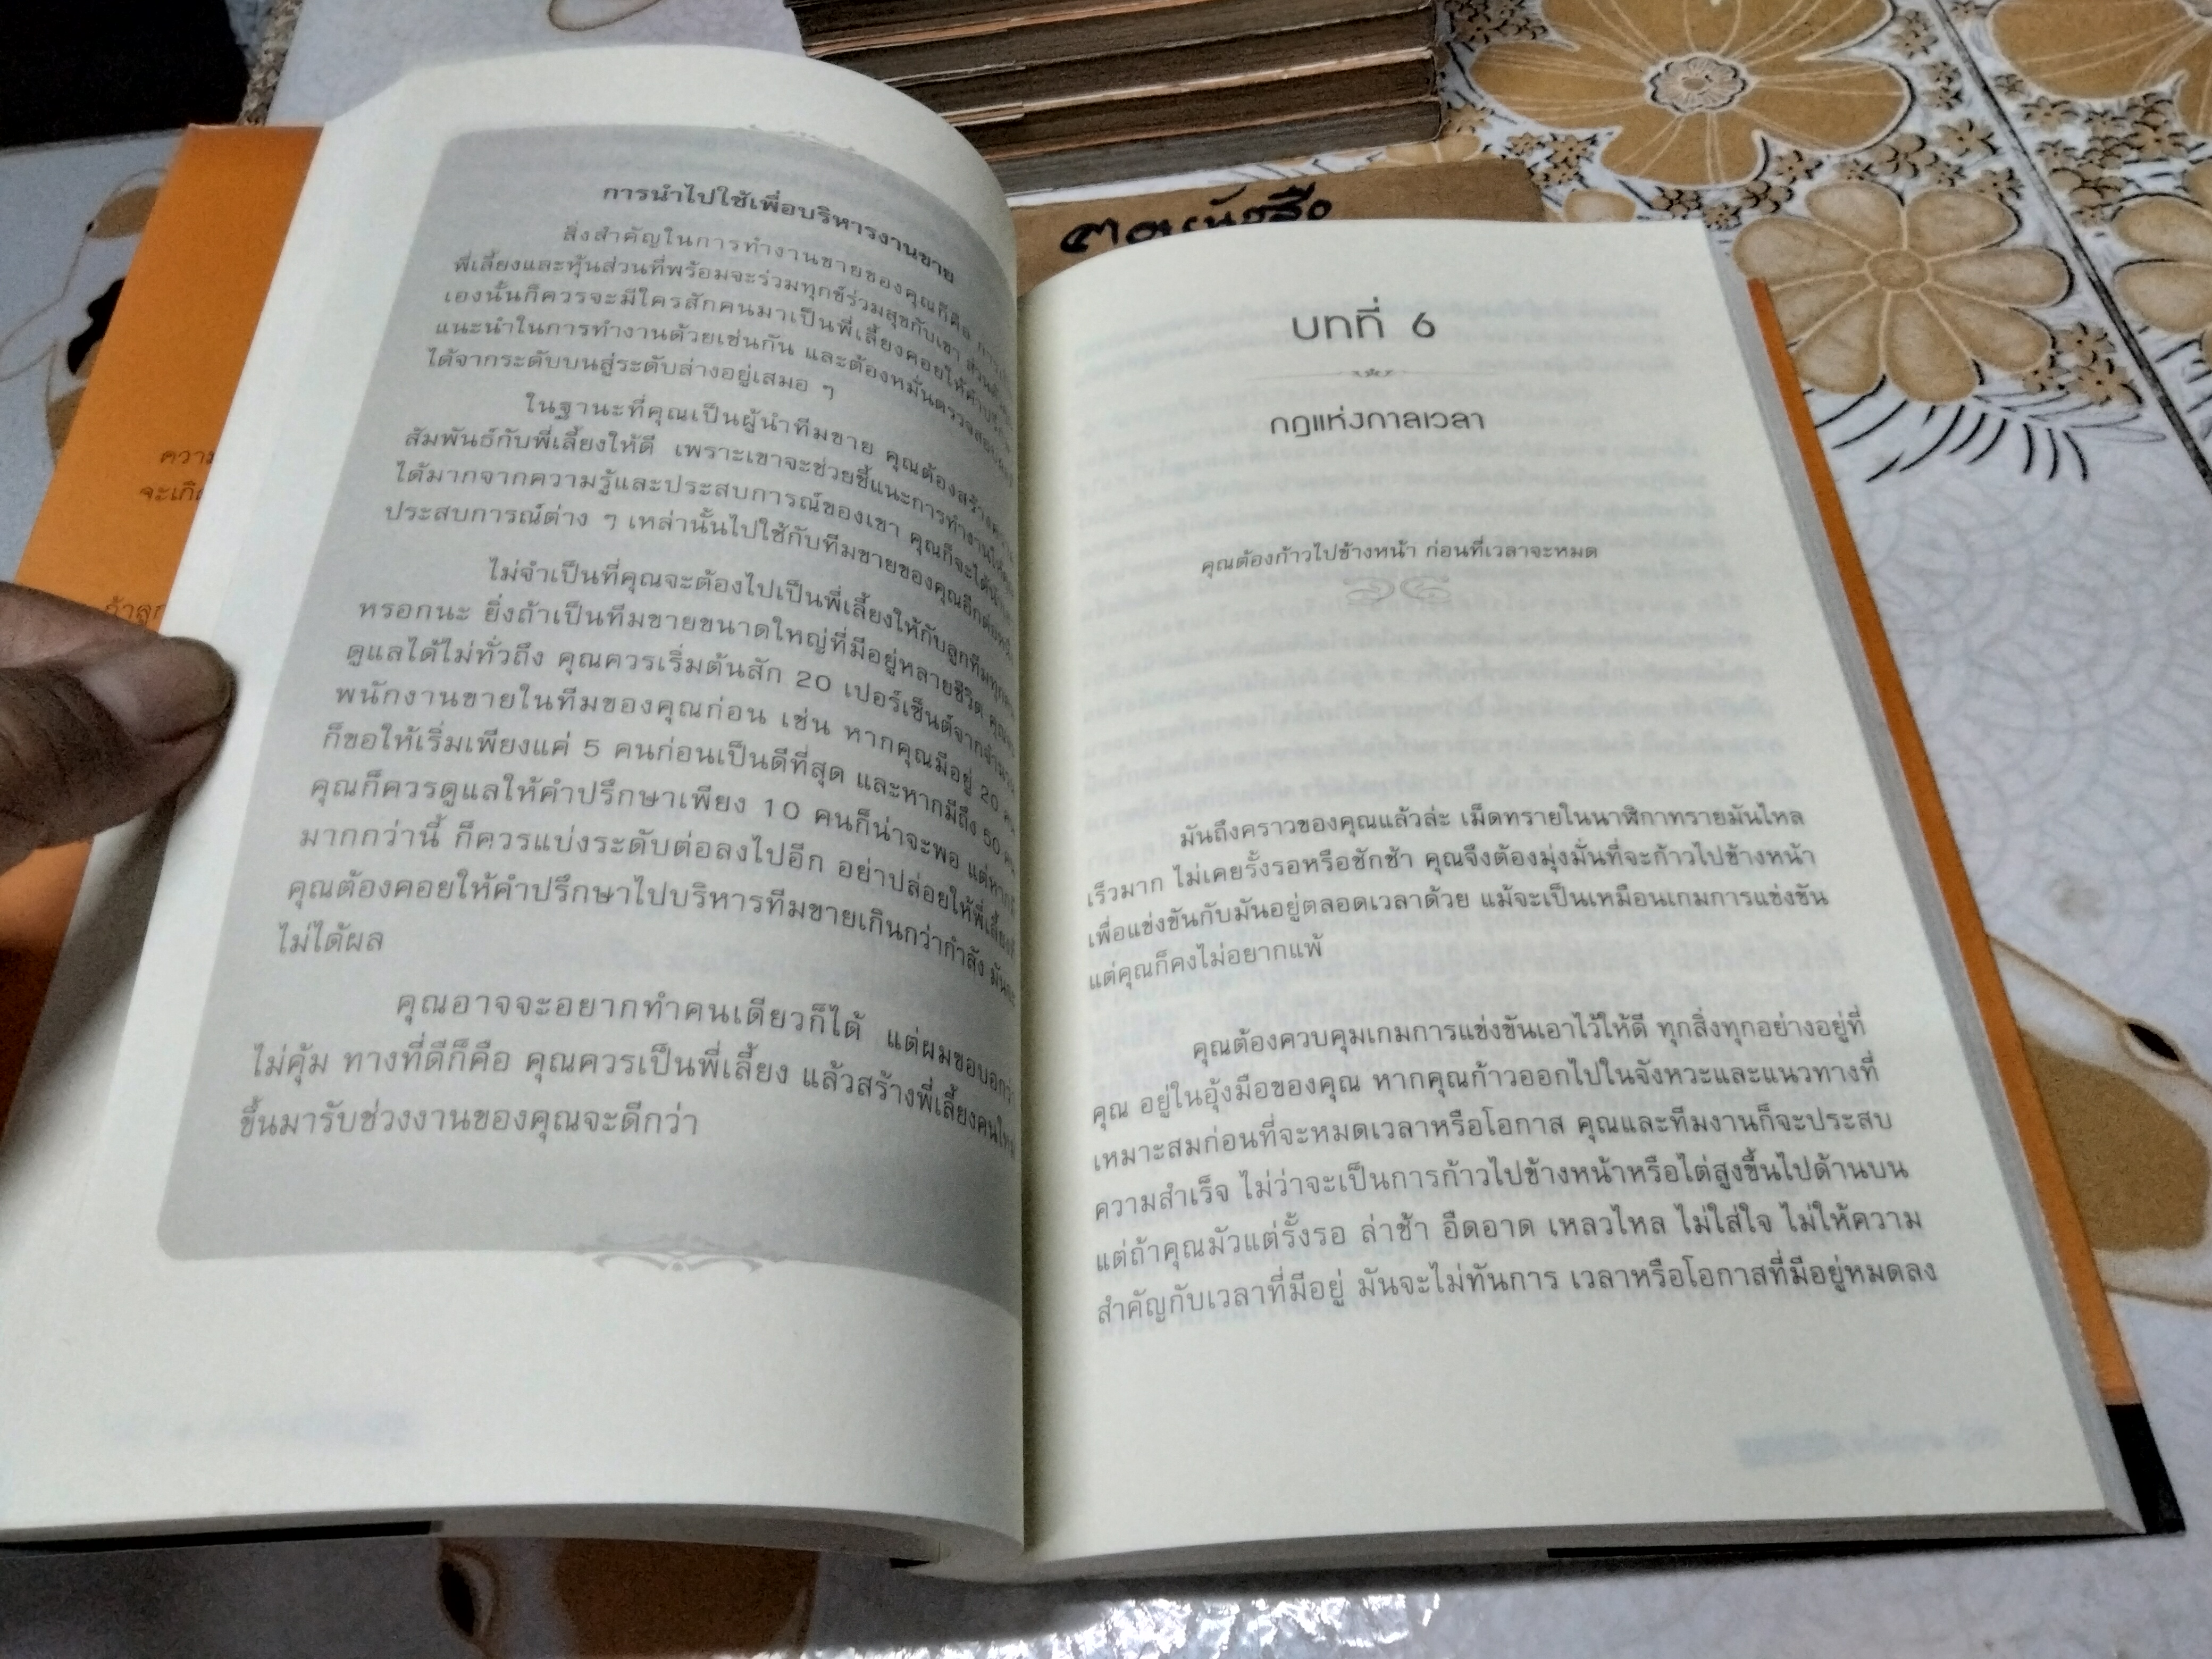 การนำไปใช้เพื่อบริหารงานขาย
สิ่งสำคัญในการทำงานขายของคุณก็คือ การ
พี่เลี้ยงและหุ้นส่วนที่พร้อมจะร่วมทุกข์ร่วมสุขกับเขา ส่วน
เองนั้นก็ควรจะมีใครสักคนมาเป็นพี่เลี้ยงคอยให้คำปรึกษา
แนะนำในการทำงานด้วยเช่นกัน และต้องหมั่นตรวจสอบ
ได้จากระดับบนสู่ระดับล่างอยู่เสมอ ๆ
ในฐานะที่คุณเป็นผู้นำทีมขาย คุณต้องสร้างความ
สัมพันธ์กับพี่เลี้ยงให้ดี เพราะเขาจะช่วยชี้แนะการทำงานให้คุณ
ได้มากจากความรู้และประสบการณ์ของเขา คุณก็จะได้นำเอา
ประสบการณ์ต่าง ๆ เหล่านั้นไปใช้กับทีมขายของคุณอีกต่อหนึ่ง
ไม่จำเป็นที่คุณจะต้องไปเป็นพี่เลี้ยงให้กับลูกทีมทุกคน
หรอกนะ ยิ่งถ้าเป็นทีมขายขนาดใหญ่ที่มีอยู่หลายชีวิต คุณจะ
ดูแลได้ไม่ทั่วถึง คุณควรเริ่มต้นสัก 20 เปอร์เซ็นต์จากจำนวน
พนักงานขายในทีมของคุณก่อน เช่น หากคุณมีอยู่ 20 คน
ก็ขอให้เริ่มเพียงแค่ 5 คนก่อนเป็นดีที่สุด และหากมีถึง 50 คน
คุณก็ควรดูแลให้คำปรึกษาเพียง 10 คนก็น่าจะพอ แต่หากมี
มากกว่านี้ ก็ควรแบ่งระดับต่อลงไปอีก อย่าปล่อยให้พี่เลี้ยงที่
คุณต้องคอยให้คำปรึกษาไปบริหารทีมขายเกินกว่ากำลัง มันจะ
ไม่ได้ผล
คุณอาจจะอยากทำคนเดียวก็ได้ แต่ผมขอบอกว่า
ไม่คุ้ม ทางที่ดีก็คือ คุณควรเป็นพี่เลี้ยง แล้วสร้างพี่เลี้ยงคนใหม่
ขึ้นมารับช่วงงานของคุณจะดีกว่า
บทที่ 6
กฎแห่งกาลเวลา
คุณต้องก้าวไปข้างหน้า ก่อนที่เวลาจะหมด
มันถึงคราวของคุณแล้วล่ะ เม็ดทรายในนาฬิกาทรายมันไหล
เร็วมาก ไม่เคยรั้งรอหรือชักช้า คุณจึงต้องมุ่งมั่นที่จะก้าวไปข้างหน้า
เพื่อแข่งขันกับมันอยู่ตลอดเวลาด้วย แม้จะเป็นเหมือนเกมการแข่งขัน
แต่คุณก็คงไม่อยากแพ้
คุณต้องควบคุมเกมการแข่งขันเอาไว้ให้ดี ทุกสิ่งทุกอย่างอยู่ที่
คุณ อยู่ในอุ้งมือของคุณ หากคุณก้าวออกไปในจังหวะและแนวทางที่
เหมาะสมก่อนที่จะหมดเวลาหรือโอกาส คุณและทีมงานก็จะประสบ
ความสำเร็จ ไม่ว่าจะเป็นการก้าวไปข้างหน้าหรือไต่สูงขึ้นไปด้านบน
แต่ถ้าคุณมัวแต่รั้งรอ ล่าช้า อืดอาด เหลวไหล ไม่ใส่ใจ ไม่ให้ความ
สำคัญกับเวลาที่มีอยู่ มันจะไม่ทันการ เวลาหรือโอกาสที่มีอยู่หมดลง